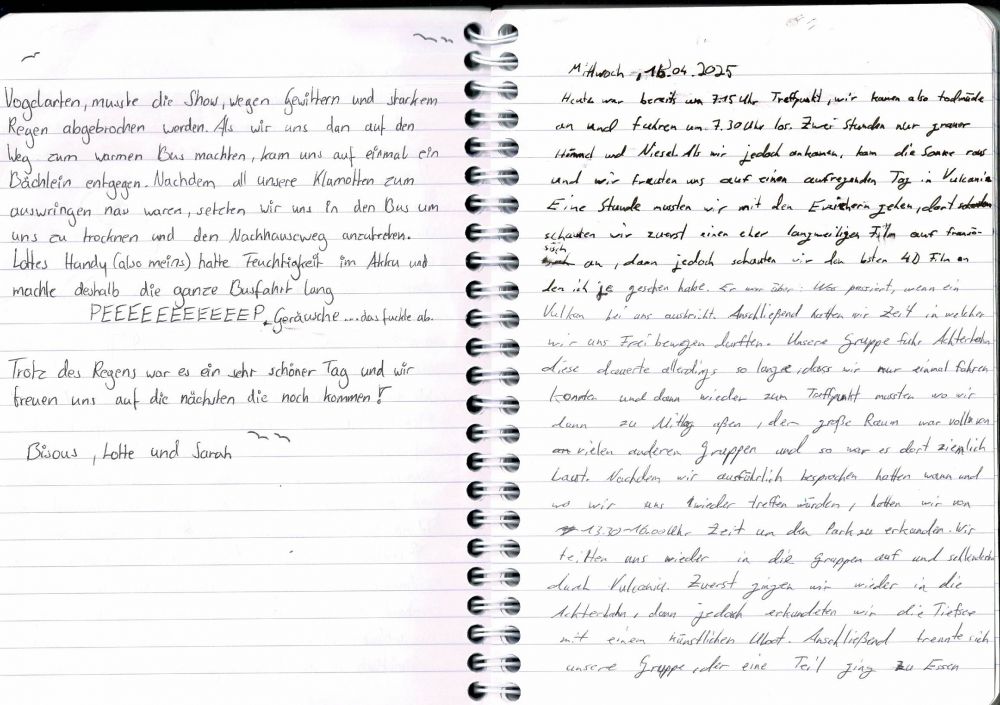 Vogelarten, musste die Show, wegen Gewittern und starkem
Regen abgebrochen werden. Als wir uns dan auf den
Weg zum warmen Bus machten, kam uns auf einmal ein
Bächlein entgegen. Nachdem all unsere Klamotten zum
auswringen nass waren, setzten wir uns in den Bus um
uns zu trocknen und den Nachhauseweg anzutreten.
Lottes Handy (also meins) hatte Feuchtigkeit im Akku und
machte deshalb die ganze Busfahrt lang
PEEEEEEEEEEEP Geräusche ... das fuckte ab.
Trotz des Regens war es ein sehr schöner Tag und wir
freuen uns auf die nächsten die noch kommen!
Bisous, Lotte und Sarah
Mittwoch, 16.04.2025
Heute war bereits um 7.15 Uhr Treffpunkt, wir kamen also todmüde
an und fuhren um 7.30 Uhr los. Zwei Stunden nur grauer
Himmel und Niesel. Als wir jedoch ankamen, kam die Sonne raus
und wir freuten uns auf einen aufregenden Tag in Vulcania
Eine Stunde mussten wir mit den Erziehern gehen, dort
schauten wir zuerst einen eher langweiligen Film auf franzö-
sisch an, dann jedoch schauten wir den bsten 4D Film an
den ich je gesehen habe. Er war über: Was passiert, wenn ein
Vulkan bei uns ausbricht. Anschließend hatten wir Zeit in welcher
wir uns Frei bewegen durften. Unsere Gruppe fuhr Achterbahn
diese dauerte allerdings so lange, dass wir nur einmal fahren
konnten und dann wieder zum Treffpunkt mussten wo wir
dann zu Mittag aßen, der große Raum war voll von
vielen anderen Gruppen und so war es dort ziemlich
Laut. Nachdem wir ausführlich besprochen hatten wann und
wo wir uns wieder treffen würden, hatten wir von
13.30-16.00 Uhr Zeit um den Park zu erkunden. Wir
teilten uns wieder in die Gruppen auf und schlenderten
durch Vulcania. Zuerst gingen wir wieder in die
Achterbahn, dann jedoch erkundeten wir die Tiefsee
mit einem künstlichen Uboot. Anschließend trennte sich
unsere Gruppe, der eine Teil ging zu Essen